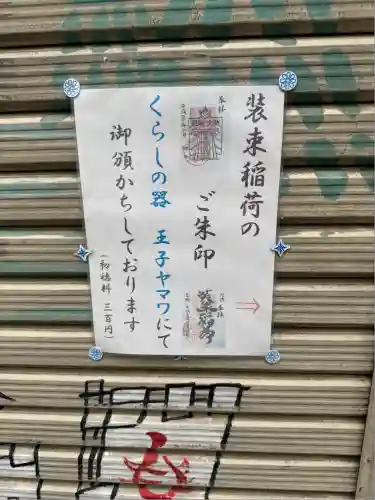 装束稲荷の
ご朱印
くらしの器　王子ヤマワにて
御頒かちしております
（初穂料　三百円）